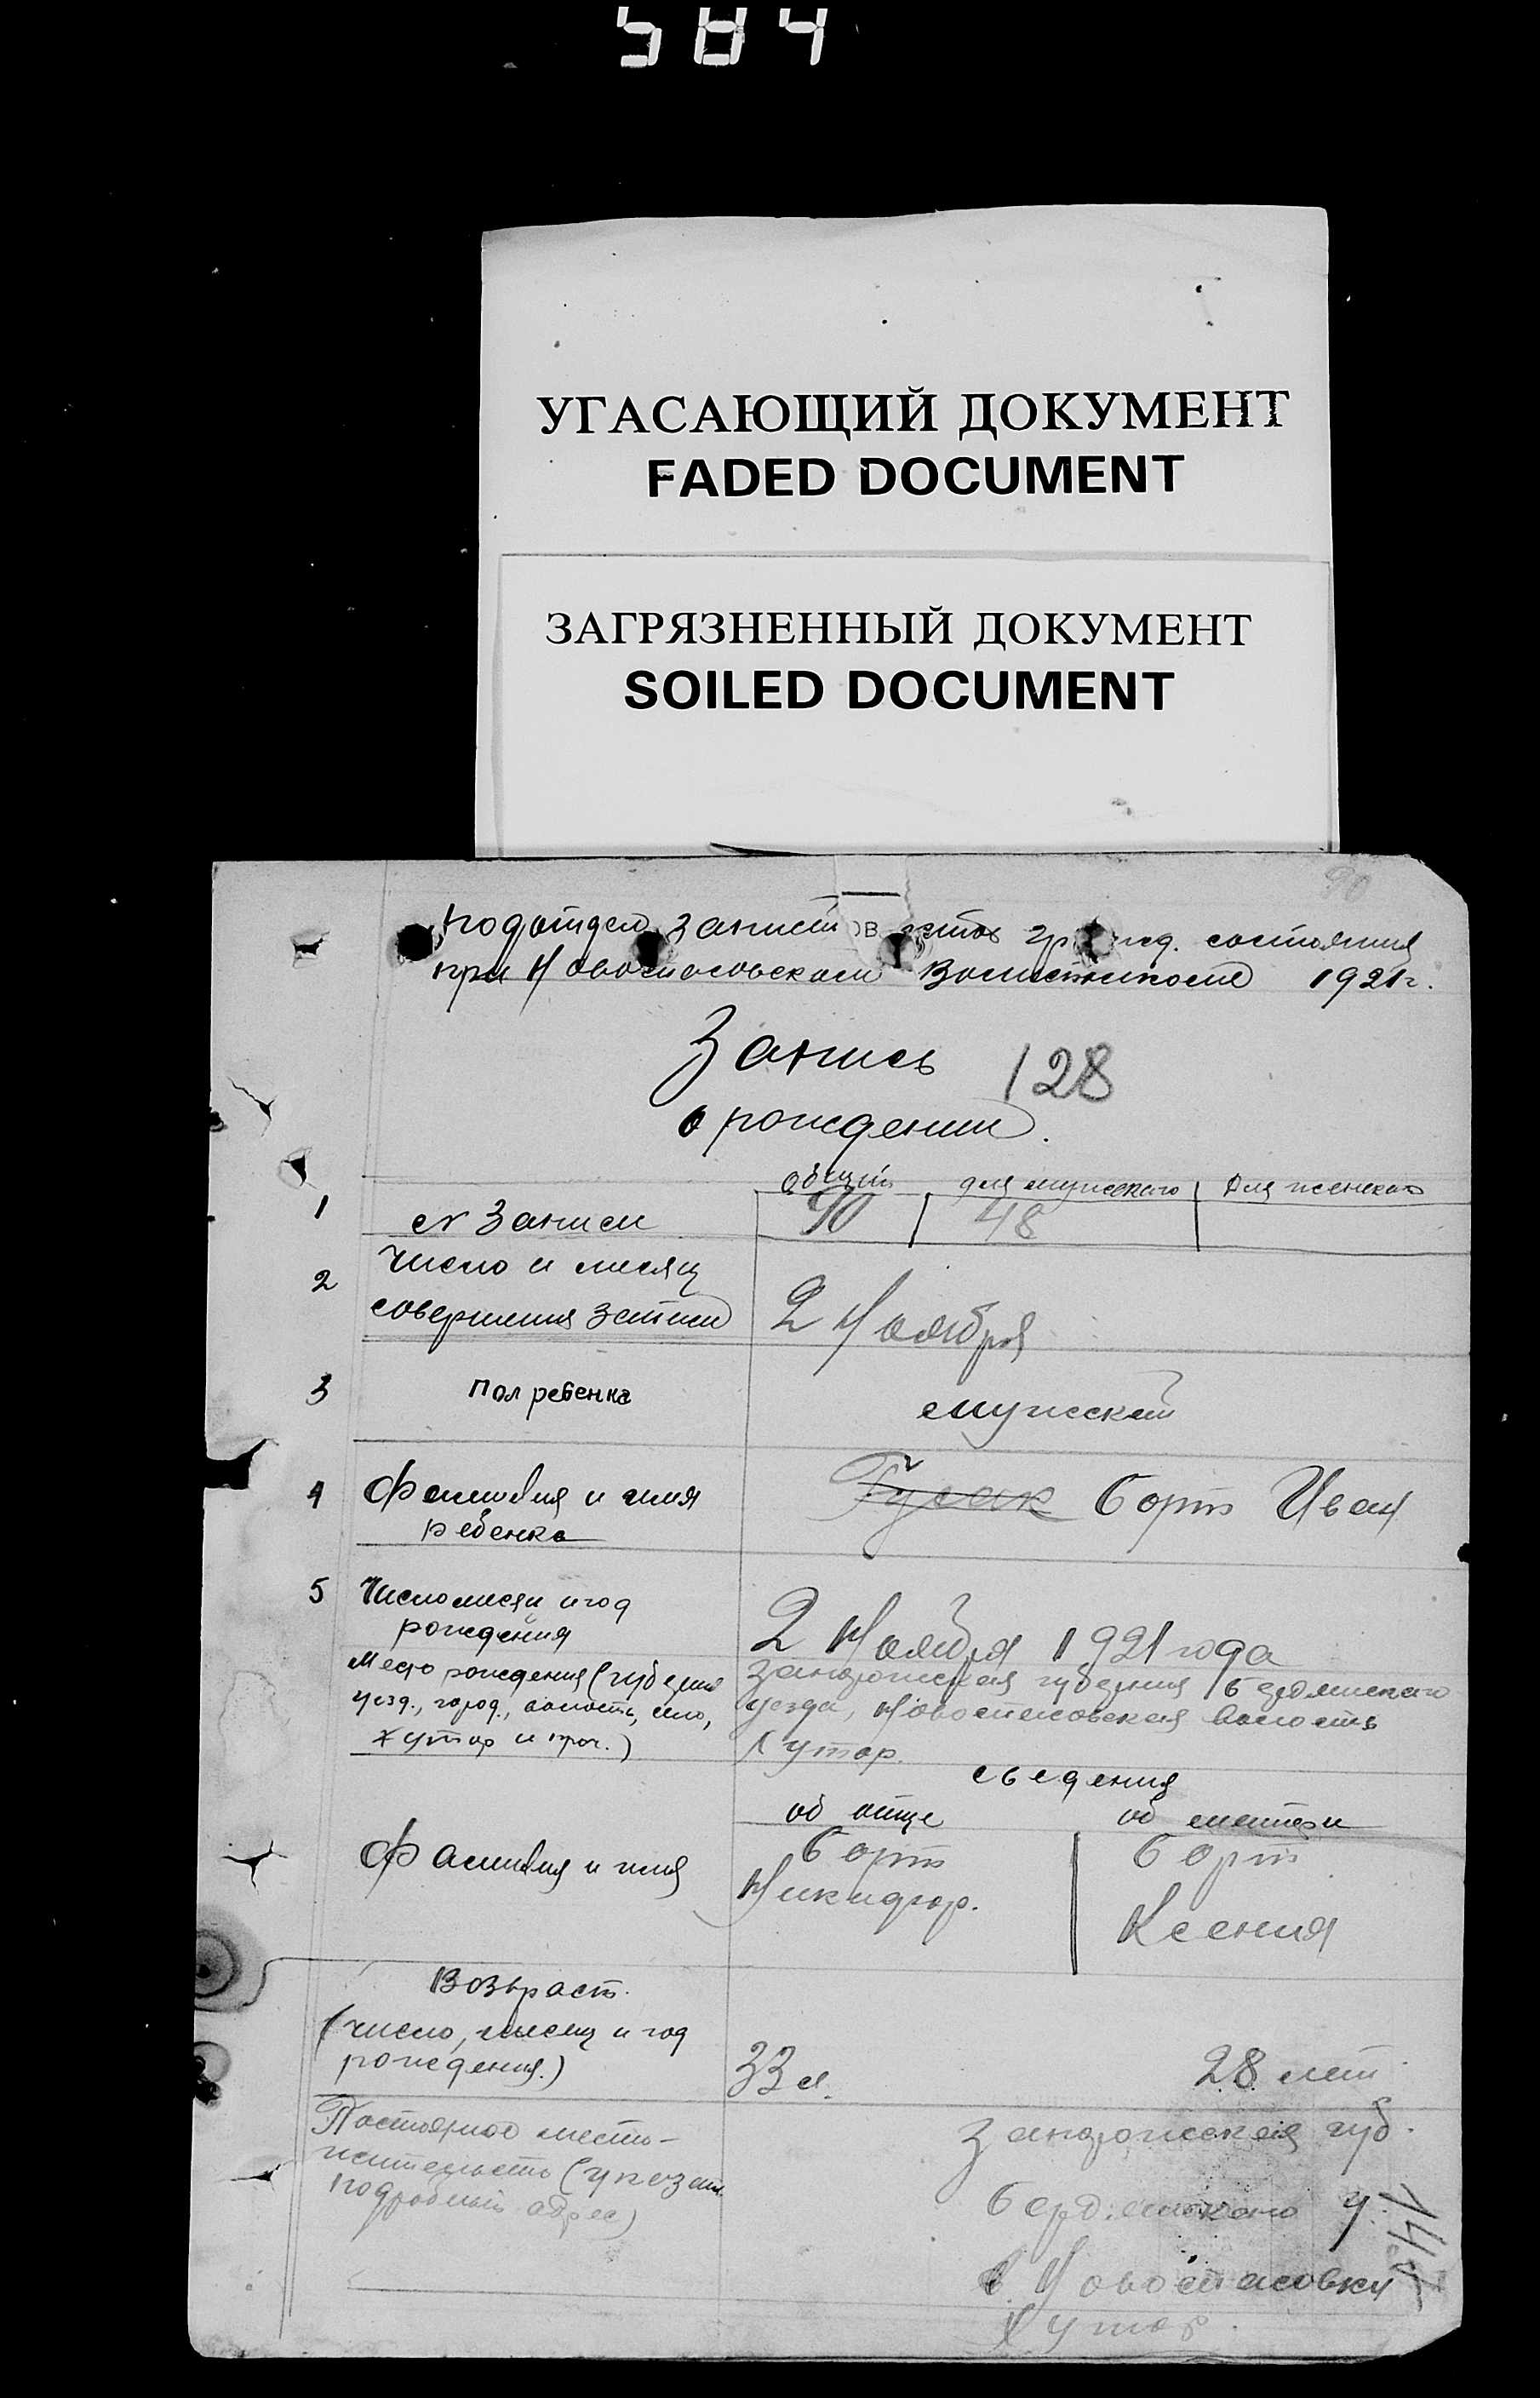 584
УГАСАЮЩИЙ ДОКУМЕНТ
FADED DOCUMENT
ЗАГРЯЗНЕННЫЙ ДОКУМЕНТ
SOILED DOCUMENT
90
Подотдел записи актов гражд. состояния
при Новоспасовском Волисполкоме 1921 г.
Запись 128
о рождении.
общий для мужского для женского
1 № Записи 90 48
2 Число и месяц
совершения записи 2 Ноября
3 Пол ребенка мужской
4 Фамилия и имя
ребенка Гусак Борт Иван
5 Число месяц и год
рождения 2 Ноября 1921 года
Место рождения (губерния Запорожская губерния Бердянского
уезд., город., волость, село, уезда, Новоспасовская волость
хутор и проч.) Хутор.
сведения
об отце об матери
Фамилия и имя Борт Борт
Никифор. Ксения
Возраст.
(число, месяц и год
рождения.) 33 л. 28 лет
Постоянное место-
жительство (указать Запорожская губ.
подробный адрес) Бердянского у.
с. Новоспасовки
Хутор.